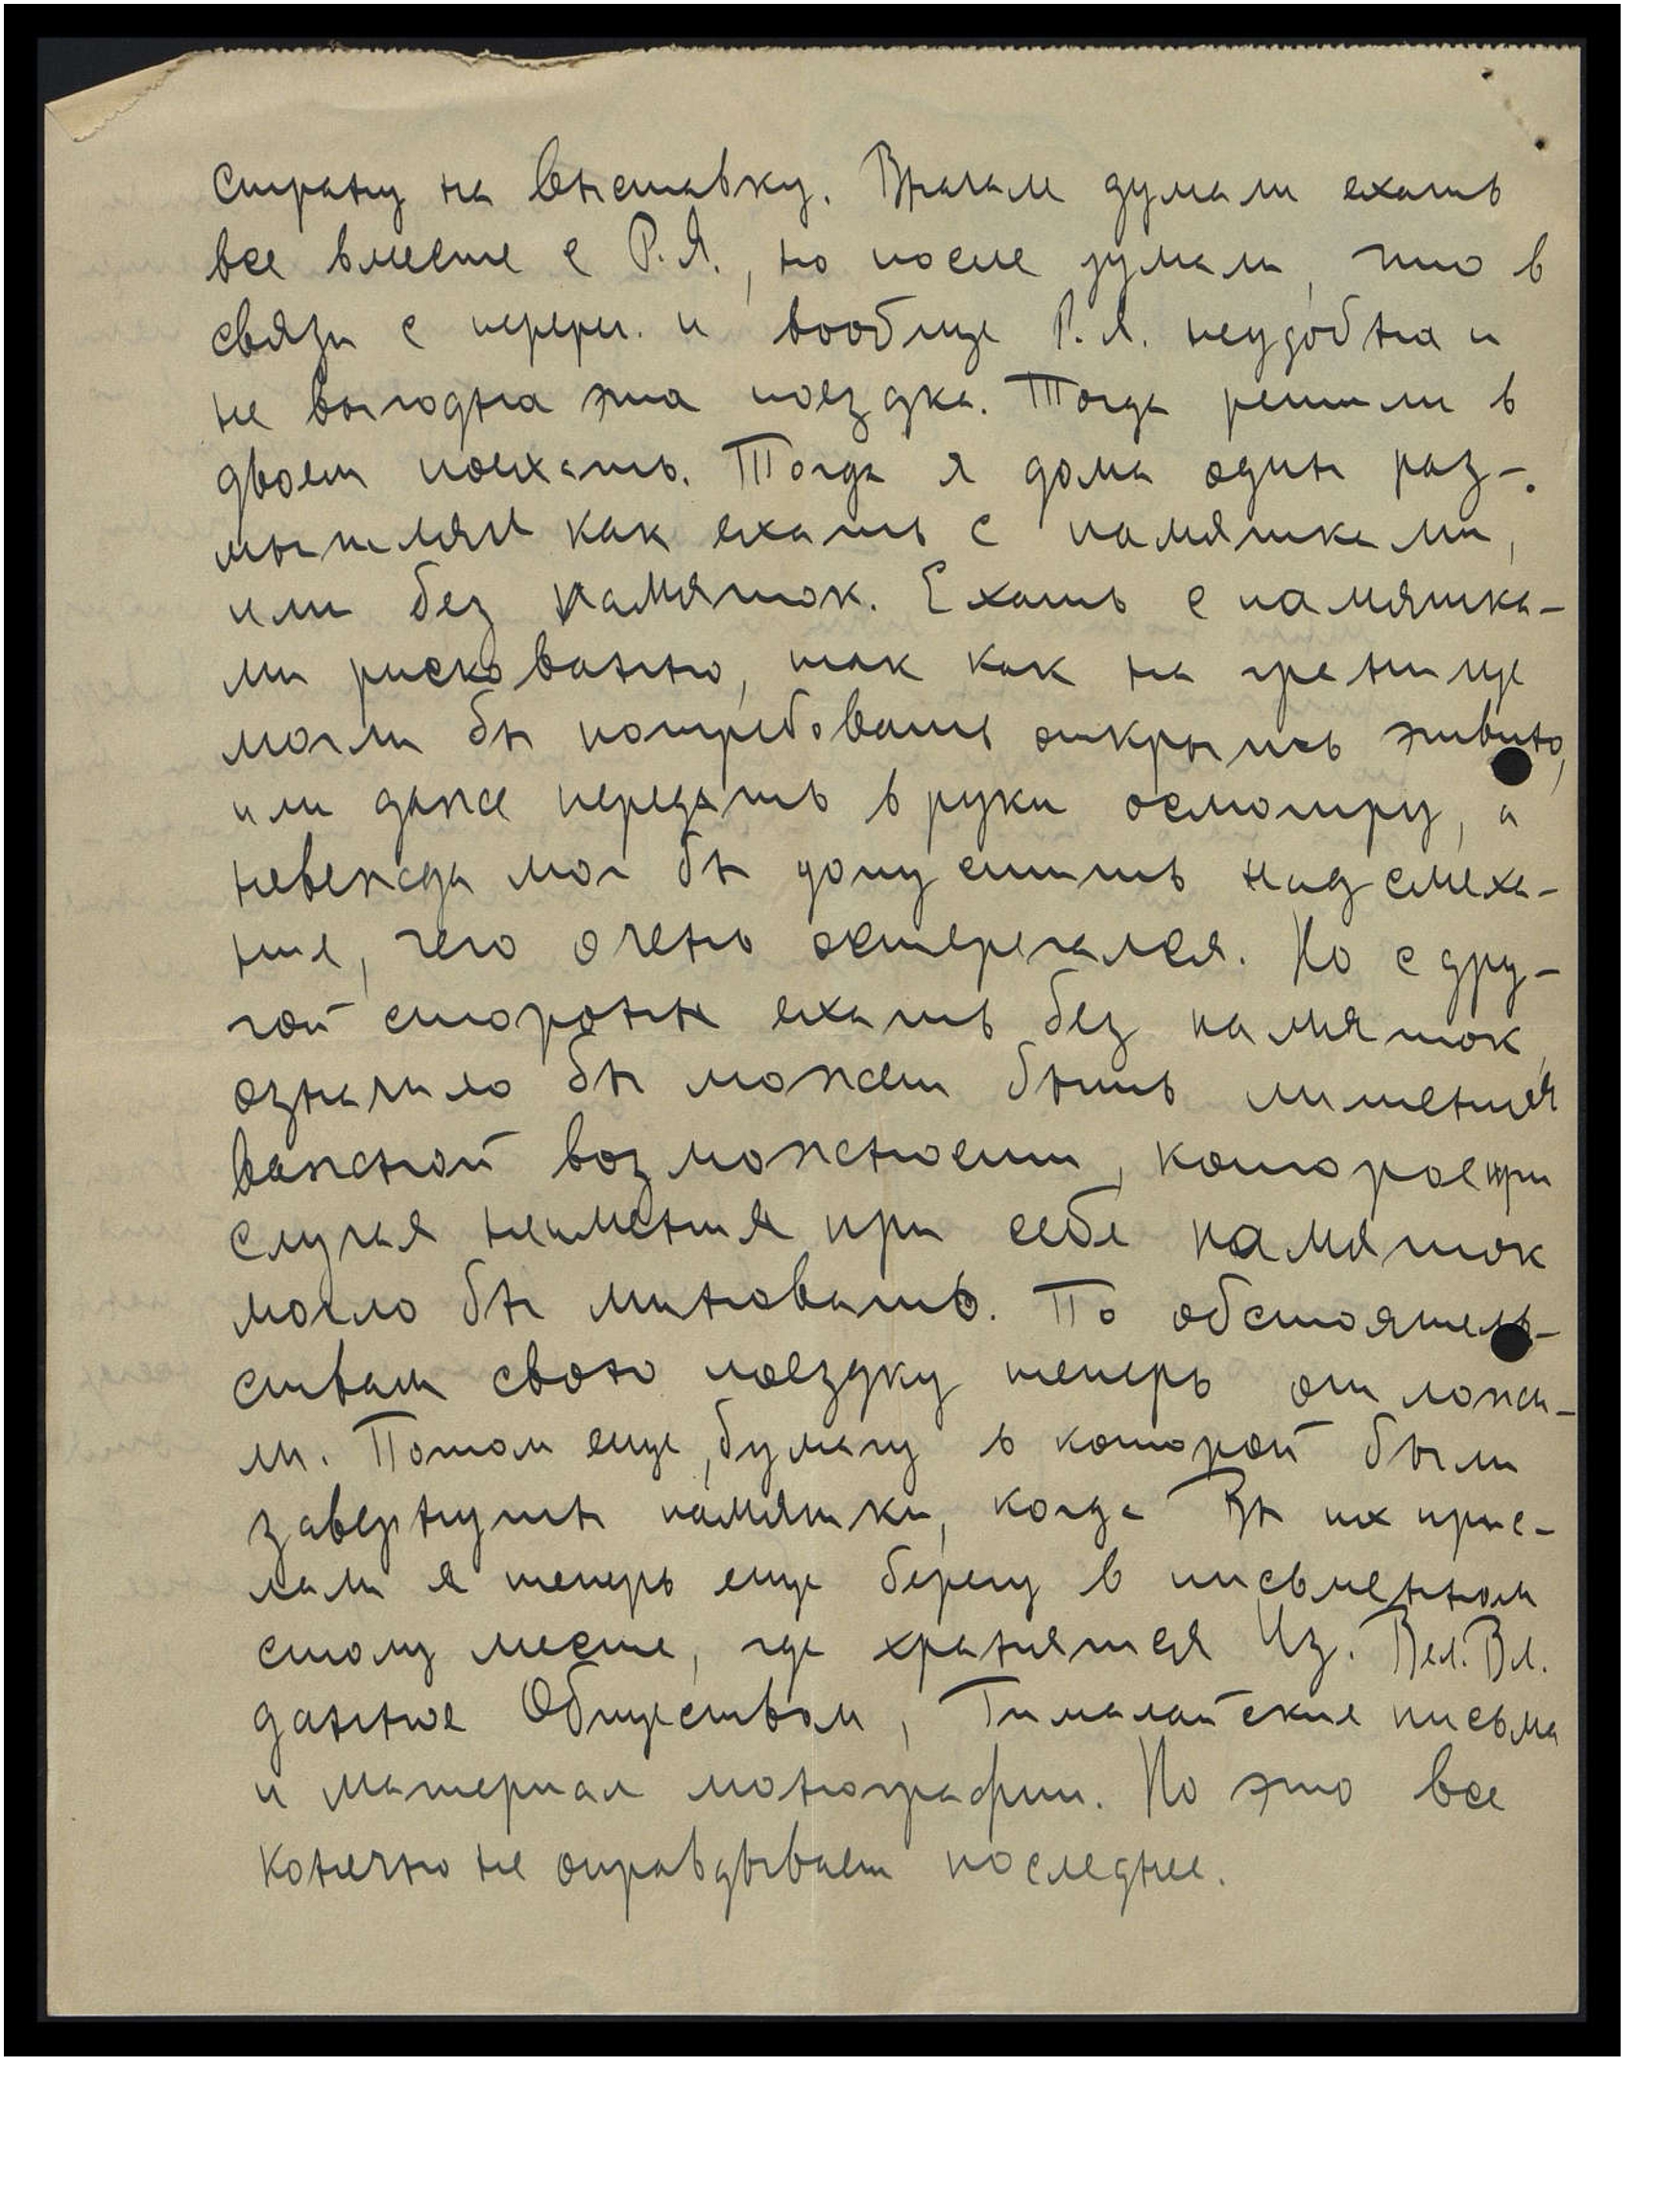 страну на выставку. Вначале думали ехать
все вместе с Р.Я., но после думали, что в
связи с перерег. и вообще Р.Я. неудобна и
не выгодна эта поездка. Тогда решили в
двоем поехать. Тогда я дома один раз-
мышлял как ехать с памятками,
или без памяток. Ехать с памятка-
ми рисковатно, так как на границе
могли бы потребовать открыть
или даже передать в руки осмотру, а
невежда мог бы допустить надсмеха-
ние, чего очень остерегался. Но с дру-
гой стороны ехать без памяток,
означило бы может быть лишения
важной возможности, которое при
случая неимения при себе памяток
могло бы миновать. По обстоятель-
ствам свою поездку теперь отложи-
ли. Потом еще, бумагу в которой были
завернуты памятки, когда Вы их прис-
лали я теперь еще берегу в письменном
столу месте, где хранятся Из. Вел. Вл.
данное Обществом, Гималайские письма
и материал монографии. Но это все
конечно не оправдывает последнее.